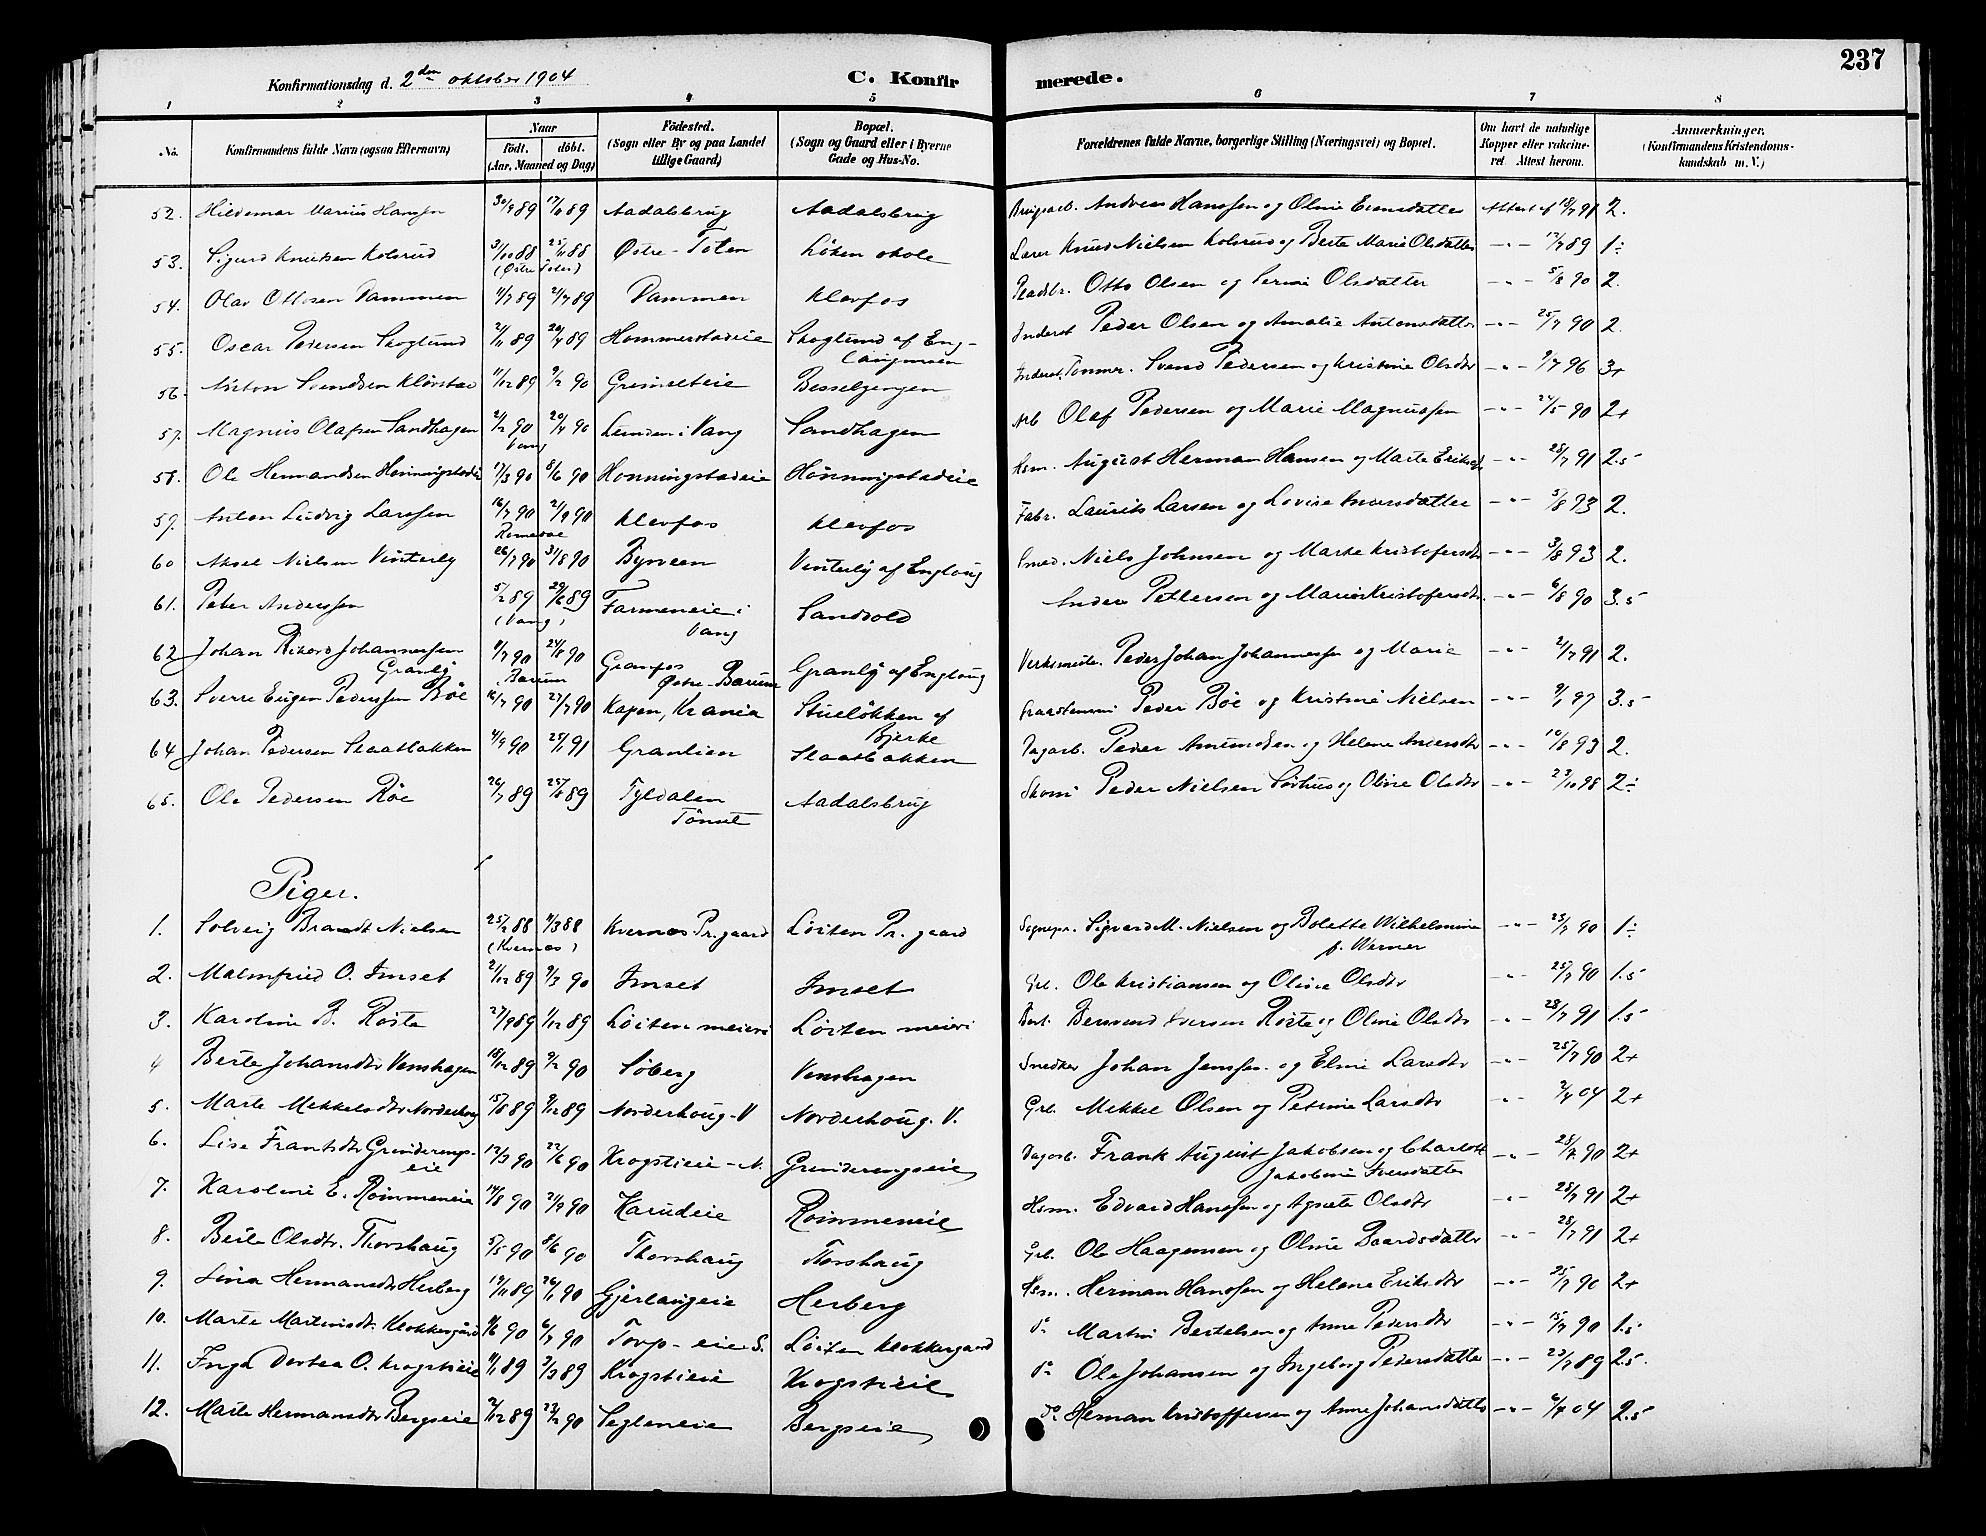 237
Konfirmationsdag d. 2den oktober 1904 C. Konfirmerede.
1 2 3 4 5 6 7 8
No. Konfirmandens fulde Navn (ogsaa Efternavn) Naar födt. döbt. (Aar, Maaned og Dag) Födested. (Sogn eller By og paa Landet tillige Gaard) Bopæl. (Sogn og Gaard eller i Byerne Gade og Hus-No. Forældrenes fulde Navne, borgerlige Stilling (Næringsvei) og Bopæl. Om havt de naturlige Kopper eller vaccineret. Attest herom. Anmærkninger. (Konfirmandens Kristendomskundskab m. V.)
52. Hildemar Marius Hansen 30/9 89 17/11 89 Aadalsbrug Aadalsbrug Andreas Hanssen og Oline Evensdatter Attest af 2.
53. Sigurd Knutsen Kolsrud 31/10 88 25/11 88 Østre-Toten Løken skole Lærer Knud Nielsen Kolsrud og Berte Marie Olsdatter -"- 12/7 89 1÷
(Østre Toten)
54. Olav Ottosen Dammen 11/7 89 21/7 89 Dammen Klevfos Pladsbr. Otto Olsen og Serine Olsdatter -"- 5/8 90 2.
55. Oscar Pedersen Skoglund 2/11 89 89 Hommerstadeie Skoglund af Eng- Inderst Peder Olsen og Amalie Antonsdatter -"- 25/7 90 2.
langmoen
56. Anton Svendsen Kløvstad 11/12 89 9/2 90 Grimseteie Besselgengen Inderst, Tømmr. Svend Pedersen og Kristine Olsdtr -"- 9/7 96 3+
57. Magnus Olafsen Sandhagen 2/2 90 20/4 90 Lunden i Vang Sandhagen Arb Olaf Pedersen og Marie Magnussen -"- 24/5 90 2+
Vang
58. Ole Hermandsen Honningstadeie 17/3 90 8/6 90 Honningstadeie Hønningstadeie Hsm. August Herman Hansen og Marte -"- 28/7 91 2.5
59. Anton Ludvig Larssen 16/7 90 21/9 90 Klevfos Klevfos Fabr. Laurits Larsen og Lovise Iversdatter -"- 5/8 93 2.
Romedal
60 Aksel Nielsen Vinterly 26/7 90 31/8 90 Byveen Vinterly af Engloug Smed. Niels Johnsen og Marte Kristofersdtr -"- 3/8 93 2.
61. Peter Anderssen 5/2 89 29/6 89 Farmeneie i Sandvold Anders Pettersen og Marie Kristofersdtr. -"- 6/8 90 3.5
(Vang) Vang
62 Johan Rikard Johannessen 11/7 90 24/8 90 Granfos Granly af Engloug Verksmester. Peder Johan Johannessen og Marie -"- 2/7 91 2.
Granly Bærum Østre-Bærum
63. Sverre Eugen Pederssen Bøe 12/7 90 27/7 90 Kapen, Krania Stueløkken af Peder Bøe og Kristine Nielsen -"- 9/1 97 3.5
Bjerke
64 Johan Pedersen Slaatbakken 4/9 90 25/1 91 Granlien Slaatbakken Dagarb. Peder Amundsen og Helene Andersdtr -"- 10/8 93 2.
65. Ole Pedersen Røe 26/7 89 25/8 89 Tyldalen Aadalsbrug Skom. Peder Nielsen Sørhus og Oline Olsdtr -"- 23/10 98 2÷
Tönset
Piger.
1. Solveig Brandt Nielsen 25/2 88 11/3 88 Kvernes Pr. gaard Løiten Pr. gaard Sognepr. Sigvard M. Nielsen og Bolette Wilhelmine -"- 23/7 90 1÷
(Kvernes) f. Werner
2. Malmfried O. Imset 21/12 89 9/3 90 Imset Imset Grl. Ole Kristiansen og Oline Olsdtr -"- 25/7 90 1.5
3. Karoline B. Røste 27/9 89 1/12 89 Løiten meieri Løiten meieri Best. Bersvend Iversen Røste og Oline Olsdtr -"- 28/7 91 1.5
4 Berte Johansdtr Venshagen 18/12 89 9/2 90 Søberg Venshagen Snedker Johan Jenssen og Eline Larsdtr -"- 25/7 90 2+
5. Marte Mekkelsdtr Norderhoug 15/8 89 9/12 89 Norderhoug-V Norderhoug. V. Grl. Mekkel Olsen og Petrine Larsdtr -"- 2/4 04 2+
6. Lise Frantsdtr Grinderengs- 12/3 90 22/6 90 Krogstieie-N. Grinderengseie Dagarb. Frank August Jakobsen og Charlotte -"- 28/7 90 2+
eie Jakobine Iversdatter
7. Karoline E. Rømmeneie 14/8 90 21/9 90 Karudeie Rømmeneie Hsm. Edvard Hanssen og Agnete Olsdtr -"- 28/7 91 2+
8. Berte Olsdtr. Thorshaug 5/5 90 8/6 90 Thorshaug Thorshaug Grl. Ole Haagensen og Oline Baardsdatter -"- 28/7 91 2+
9. Lina Hermansdtr Herberg 19/11 89 26/1 90 Gjerlaugeie Herberg Hsm. Herman Hanssen og Helene Eriksdtr -"- 25/7 90 2+
10. Marte Martinsdtr. Klokkergård 9/6 90 6/7 90 Torp-eie S. Løiten Klokkergaard do Martin Bertelsen og Anne Pedersdtr -"- 15/7 90 1.5
11. Inga Dortea O. Krogstieie 11/1 89 3/3 89 Krogstieie Krogstieie do Ole Johansen og Ingeborg Pedersdatter -"- 23/7 89 2.5.
12. Marte Hermansdtr Bergseie 2/12 89 23/2 90 Segleneie Bergseie do Herman Kristoffersen og Anne Johansdatter -"- 6/4 04 2.5